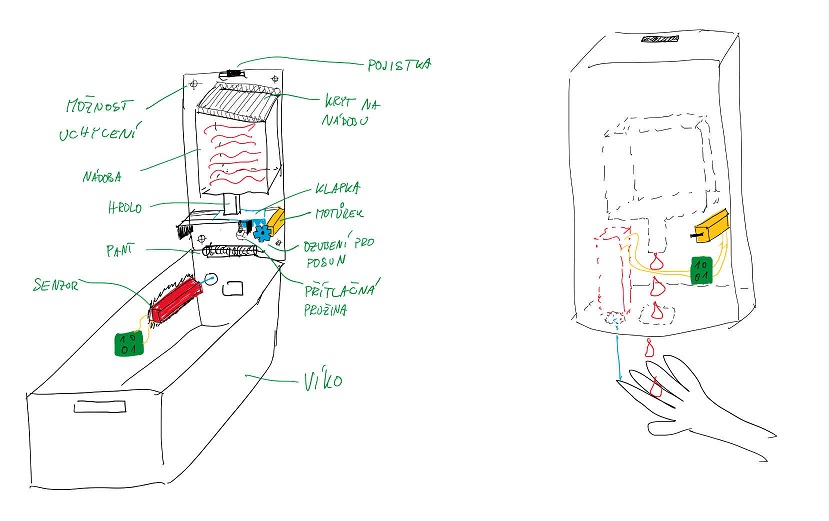 POJISTKA
MOŽNOST
UCHYCENÍ
KRYT NA
NÁDOBU
NÁDOBA
KLAPKA
HRDLO
MOTŮREK
PANT
OZUBENÍ PRO
POSUN
SENZOR
PŘÍTLAČNÁ
PRUŽINA
10
01
VÍKO
10
01